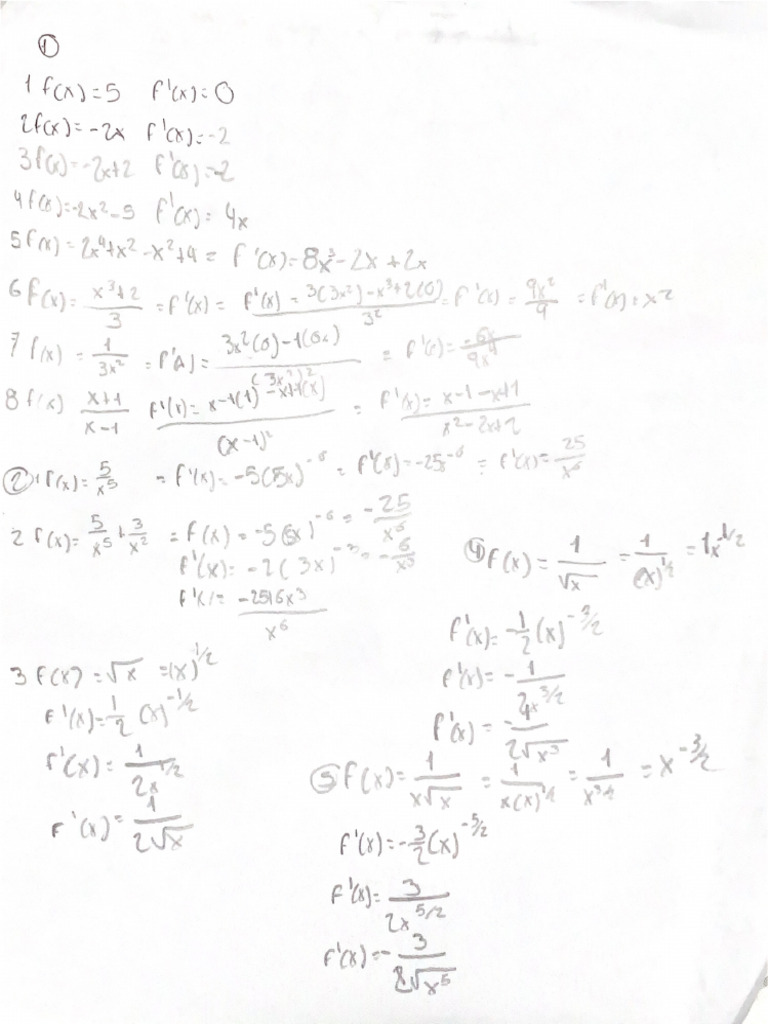 ①
1 f(x)=5 f'(x)=0
2 f(x)=-2x f'(x)=-2
3 f(x)=-2x+2 f'(x)=-2
4 f(x)=-2x²-5 f'(x)=4x
5 f(x)=2x⁴+x²-x²+4= f'(x)=8x³-2x+2x
6 f(x)=(x³+2)/3 =f'(x)= f'(x)=(3(3x²)-x³+2(0))/3² = f'(x)=9x²/9 =f'(x)=x²
7 f(x)=1/(3x²) =f'(x)=(3x²(0)-1(6x))/(3x²)² = f'(x)=-6x/9x⁴
8 f(x) (x+1)/(x-1) f'(x)=(x-1(1)-x+1(x))/(x-1)² = f'(x)=(x-1-x+1)/(x²-2x+2)
② 1 f(x)=5/x⁵ =f'(x)=-5(5x)⁻⁶ = f'(x)=-25x⁻⁶ = f'(x)=25/x⁶
2 f(x)=5/x⁵+3/x² =f(x)=-5(5x)⁻⁶=-25/x⁶
f'(x)=-2(3x)⁻³=-6/x³
f'(x)=(-25+6x³)/x⁶
3 f(x)=√x =(x)^1/2
f'(x)=1/2 (x)^-1/2
f'(x)=1/(2x^1/2)
f'(x)=1/(2√x)
④ f(x)=1/√x =1/(x)^1/2 =1x^-1/2
f'(x)=-1/2(x)^-3/2
f'(x)=-1/(2x^3/2)
f'(x)=-1/(2√x³)
⑤ f(x)=1/(x√x) =1/(x(x)^1/2) =1/x^3/2 =x^-3/2
f'(x)=-3/2(x)^-5/2
f'(x)=3/(2x^5/2)
f'(x)=-3/(2√x⁵)